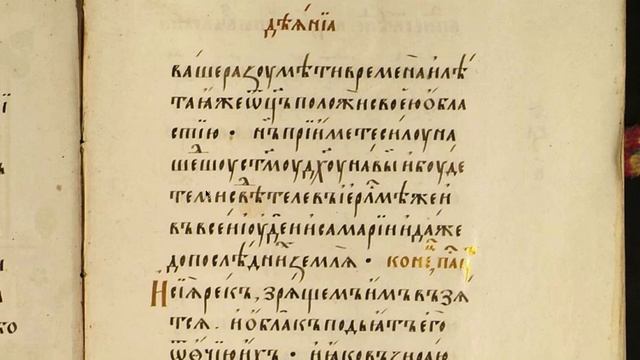 дѣꙗ́нїа
ва́шеразоумѣ́тивремена̀илѣ́
таꙗ҆́жеѿц҃ъположѝсвое́юѻ҆бла
стїю · нъпрїи́метеси́лоуна
ше́дшоуст҃моудх҃оунавы̀ ибоу́де
темисвѣ́телевъіерⷭ҇ли́мѣжеи
въвсе́иїоуде́иисамарі́иидаже
допослѣ́днїⷯземлѧ̀ · коне́ⷰ҇
Исїѧ̑ре́къ, зрѧ́щемъи́мъвъзѧ́
тсѧ. иѻ҆́блакъподъѧ́тъего̀
ѿѻ҆́чїюи́хъ · иꙗ҆́ковъзира́ю